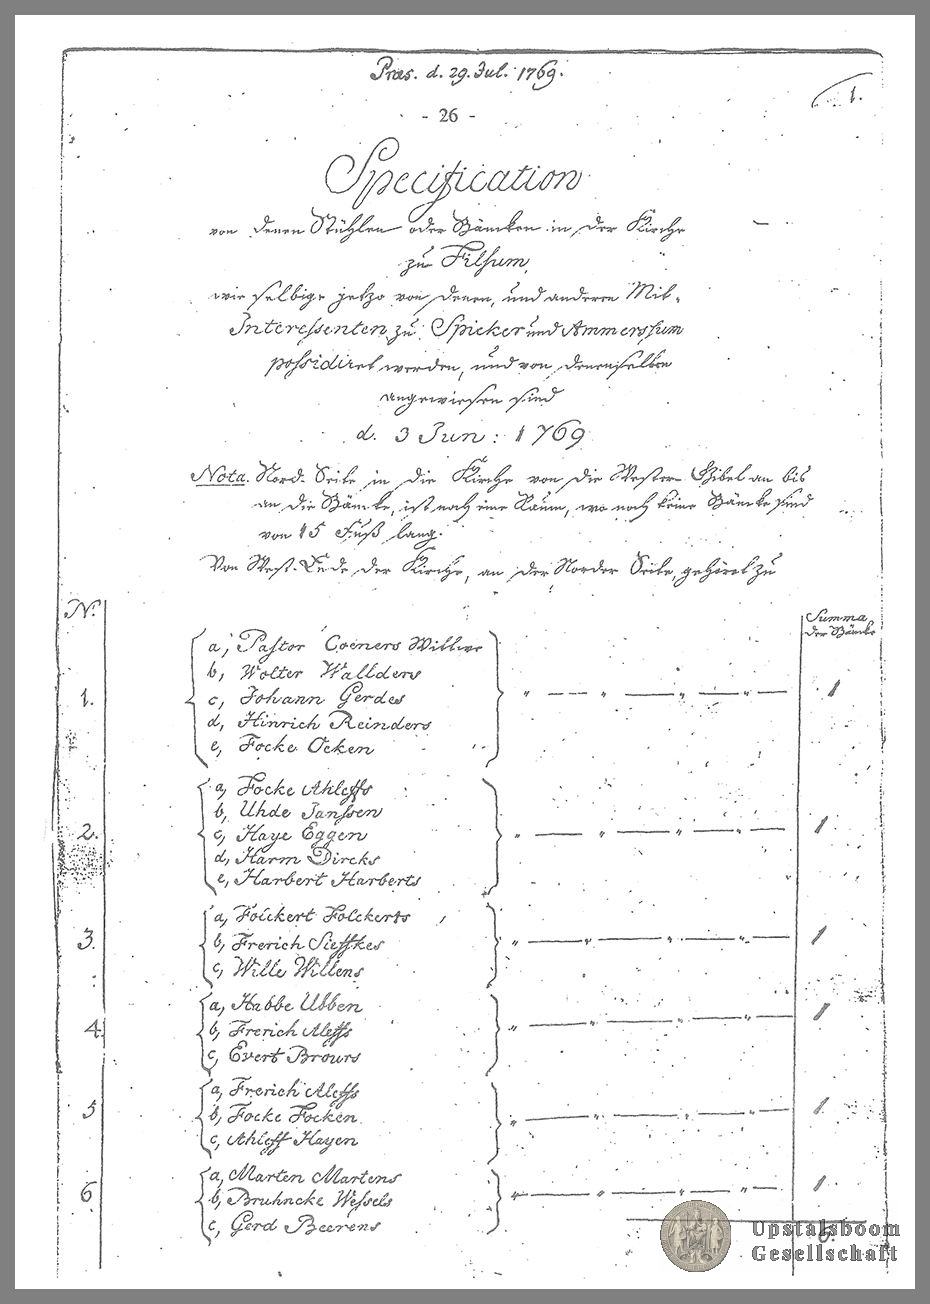 Præs. d. 29. Jul. 1769.
1.
- 26 -
Specification
von denen Stühlen oder Bäncken in der Kirche
zu Filsum,
wie selbige jetzo von denen, und anderen Mit-
Interessenten zu Spicker und Ammerssum
possidiret werden, und von denenselben
angewiesen sind
d. 3 Jun: 1769
Nota. Nord-Seite in die Kirche von die Wester-Gibel an bis
an die Bäncke, ist noch eine Raum, wo noch keine Bäncke sind
von 15 Fuß lang.
Von West-Ende der Kirche, an der Norder Seite, gehöret zu
No.
Summa
der Bäncke
1.
a, Pastor Coeners Wittwe
b, Wolter Wallders
c, Johann Gerdes
d, Hinrich Reinders
e, Focke Ocken
1
2.
a, Focke Ahleffs
b, Uhde Janssen
c, Haye Eggen
d, Harm Dircks
e, Harbert Harberts
1
3.
a, Folckert Folckerts
b, Frerich Sieffkes
c, Wille Willens
1
4.
a, Habbe Ubben
b, Frerich Aleffs
c, Evert Brours
1
5
a, Frerich Aleffs
b, Focke Focken
c, Ahleff Hayen
1
6
a, Marten Martens
b, Bruhncke Wessels
c, Gerd Beerens
1
6.
Upstalsboom
Gesellschaft